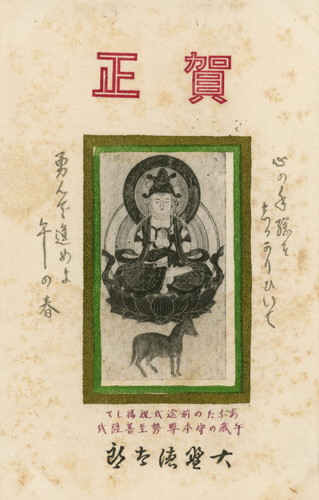 賀正
心の手綱を
しつかりひいて
勇んで進めよ
午の春
あなたの前途を祝福して
午歳の守本尊勢至菩薩を
大野徳太郎